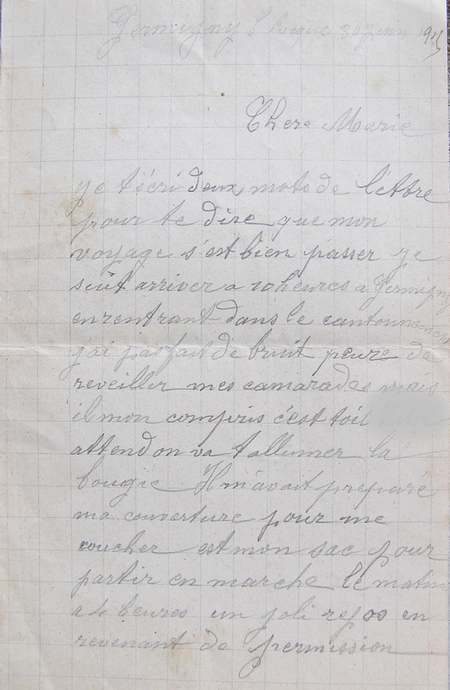 Germigny l'Eveque 30 juin 1915
Chere Marie
je t'écri deux mots de lettre
pour te dire que mon
voyage s'est bien passer je
suit arriver a 10 heures a Germigny
en rentrant dans le cantonnement
j'ai pas fait de bruit peure de
reveiller mes camarades mais
il mon compris c'est toit
attend on va t'allumer la
bougie Il m'avait preparé
ma couverture pour me
coucher est mon sac pour
partir en marche le matin
a 4 heures un joli repos en
revenant de permission